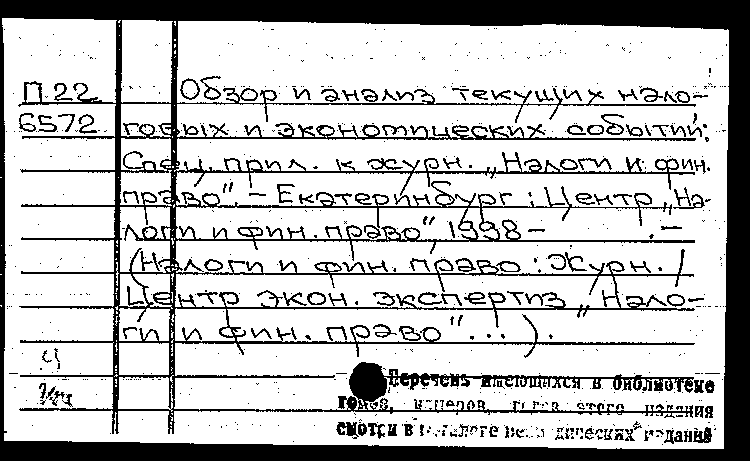 П.22 Обзор и анализ текущих нало-
6572 говых и экономических событий:
Спец. прил. к журн. „Налоги и фин.
право". – Екатеринбург : Центр „На-
логи и фин. право", 1998 – . –
(Налоги и фин. право : Журн. /
Центр экон. экспертиз „Нало-
ги и фин. право"...).
Перечень имеющихся в библиотеке
томов, номеров, годов этого издания
смотри в каталоге периодических изданий